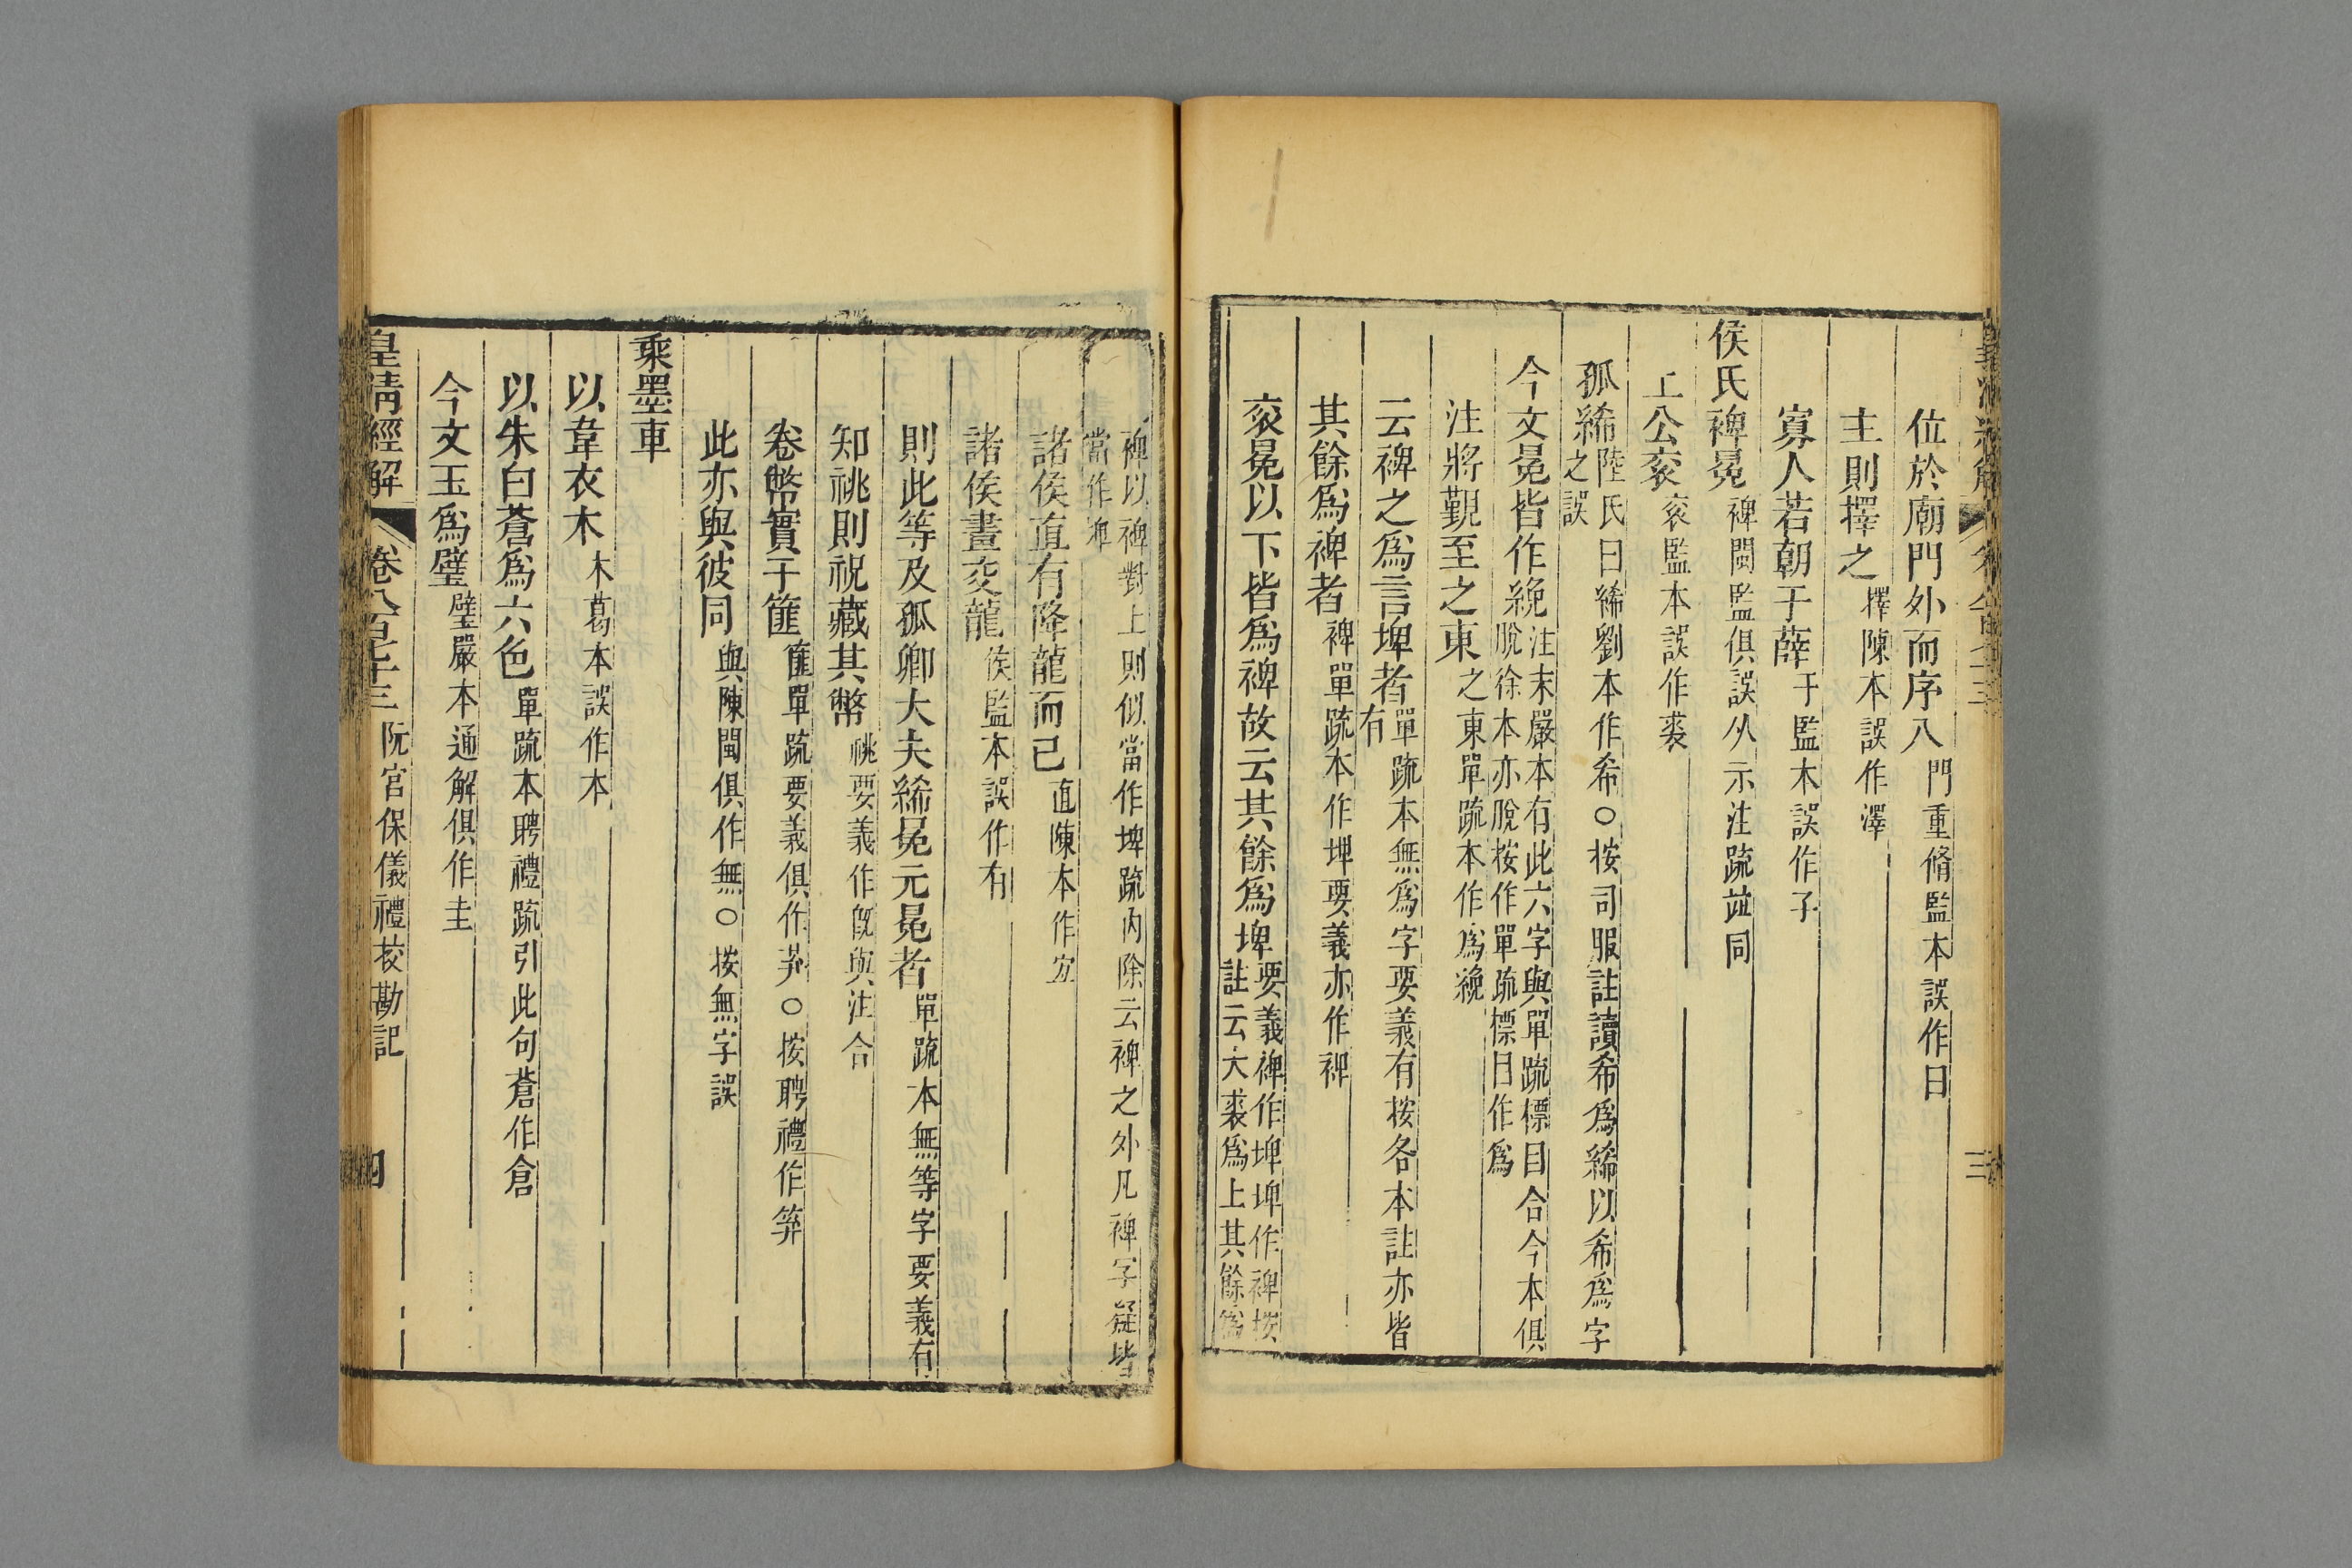 位於廟門外而序入門重脩監本誤作日
主則擇之擇陳本誤作澤
寡人若朝于薛于監本誤作子
侯氏裨冕裨閩監俱誤从示注疏竝同
上公衮衮監本誤作裘
孤絺陸氏曰絺劉本作希○按司服註讀希爲絺以希爲字之誤
今文冕皆作絻注末嚴本有此六字與單疏標目合今本俱脫徐本亦脫按作單疏標目作爲
注將覲至之東之東單疏本作爲絻
云裨之爲言埤者單疏本無爲字要義有按各本註亦皆有
其餘爲裨者裨單疏本作埤要義亦作裨
衮冕以下皆爲裨故云其餘爲埤要義裨作埤埤作裨按註云大裘爲上其餘爲
裨以裨對上則似當作埤疏內除云裨之外凡裨字疑皆當作埤
諸侯直有降龍而已直陳本作宜
諸侯畫交龍侯監本誤作有
則此等及孤卿大夫絺冕元冕者單疏本無等字要義有
知祧則祝藏其幣祧要義作旣與注合
卷幣實于篚篚單疏要義俱作筓○按聘禮作筭
此亦與彼同與陳閩俱作無○按無字誤
乘墨車
以韋衣木木葛本誤作本
以朱白蒼爲六色單疏本聘禮疏引此句蒼作倉
今文玉爲璧璧嚴本通解俱作圭
皇清經解 卷八百七十三 阮宮保儀禮挍勘記 四